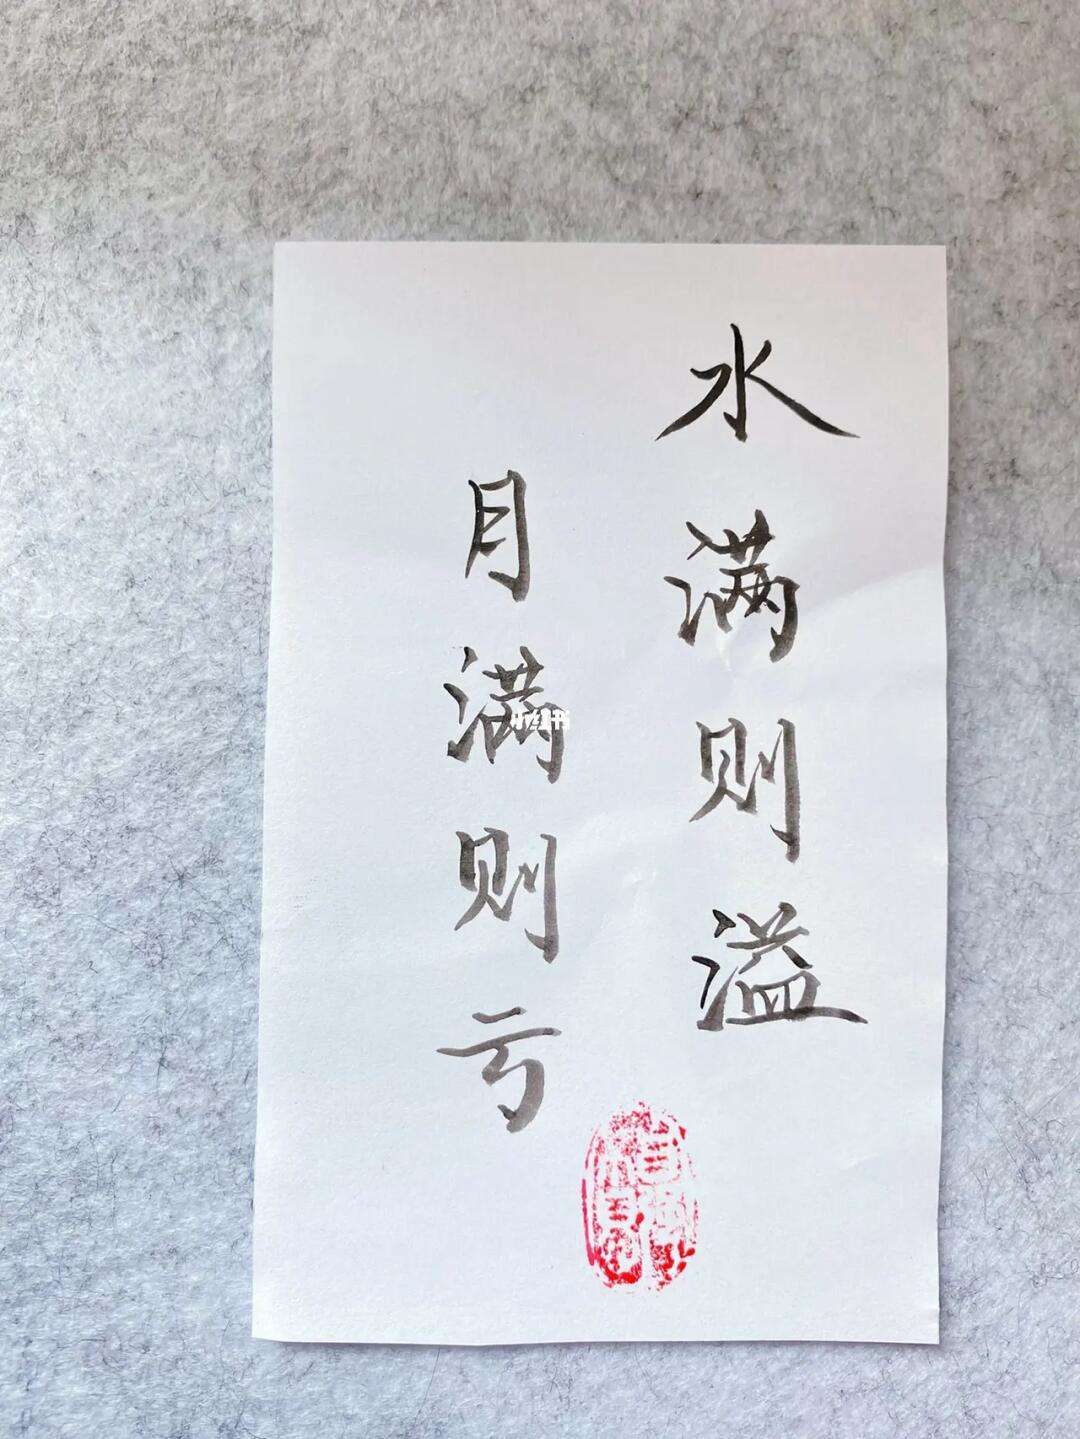 水满则溢
月满则亏
小红书